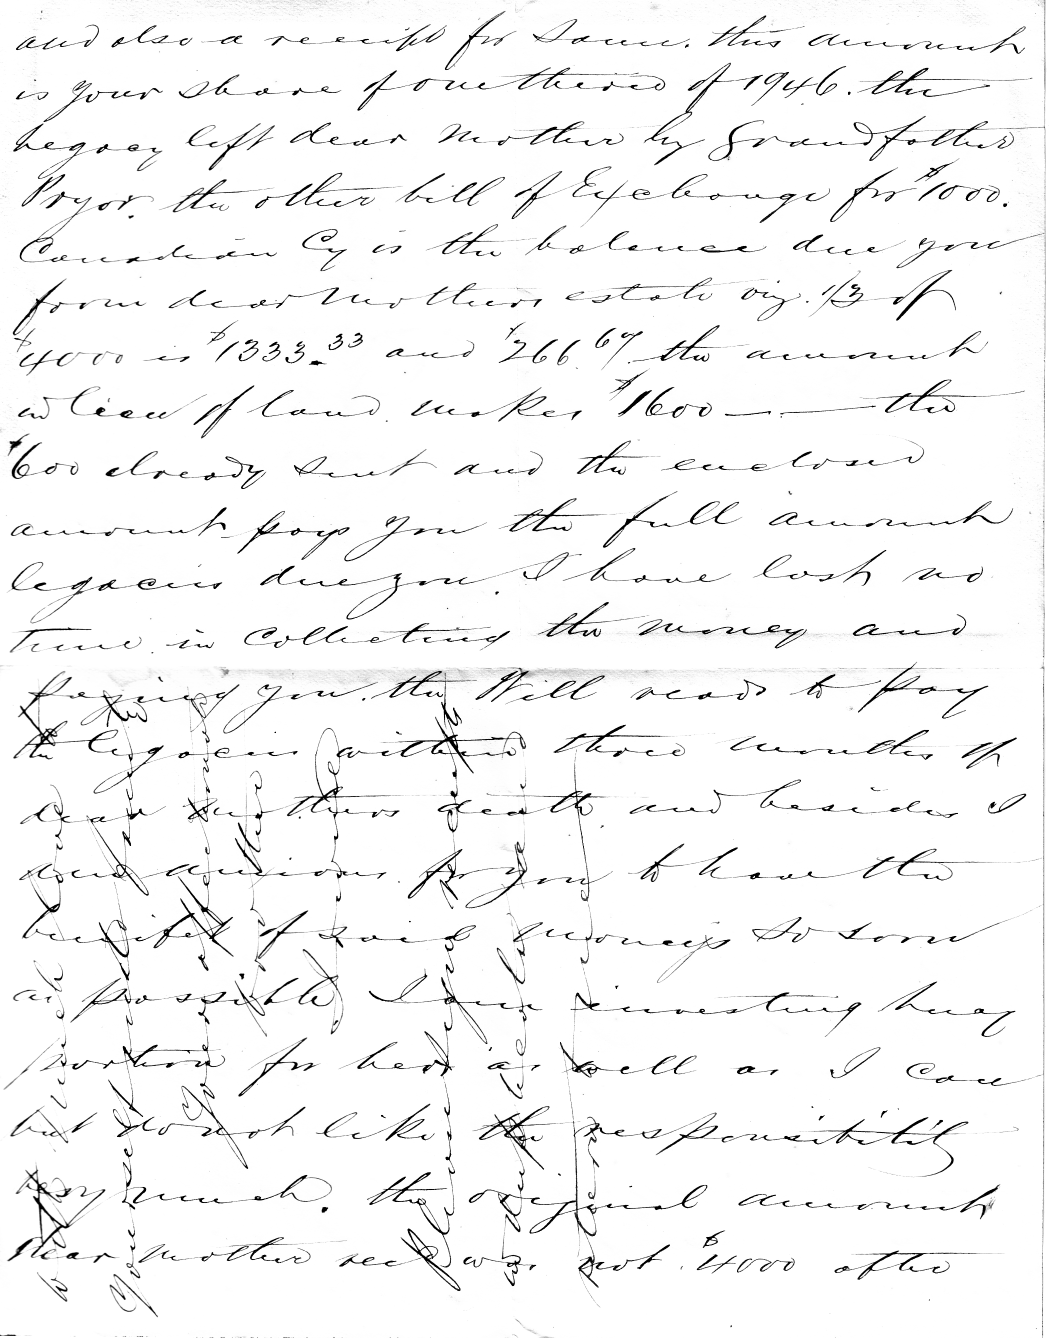 and also a receipt for same. this amount
is your share of onethird of 1946. the
legacy left dear Mother by Grandfather
Pryor. the other bill of Exchange for $1000.
Canadian Cy is the balance due you
from dear Mothers estate viz. 1/3 of
$4000 is $1333.33 and $266.67 the amount
in lieu of land makes $1600 — the
$600 already sent and the enclosed
amount pays you the full amount
legacies due you. I have lost no
time in collecting the money and
paying you. the Will reads to pay
the legacies within three months of
dear mothers death and besides I
am anxious for you to have the
benefit of said moneys so soon
as possible I am investing
portion for her as well as I can
but do not like the responsibility
very much. the original amount
dear Mother recd was not $4000 after
to much love
yourself and
Your affectionate
brother
Please sign receipt